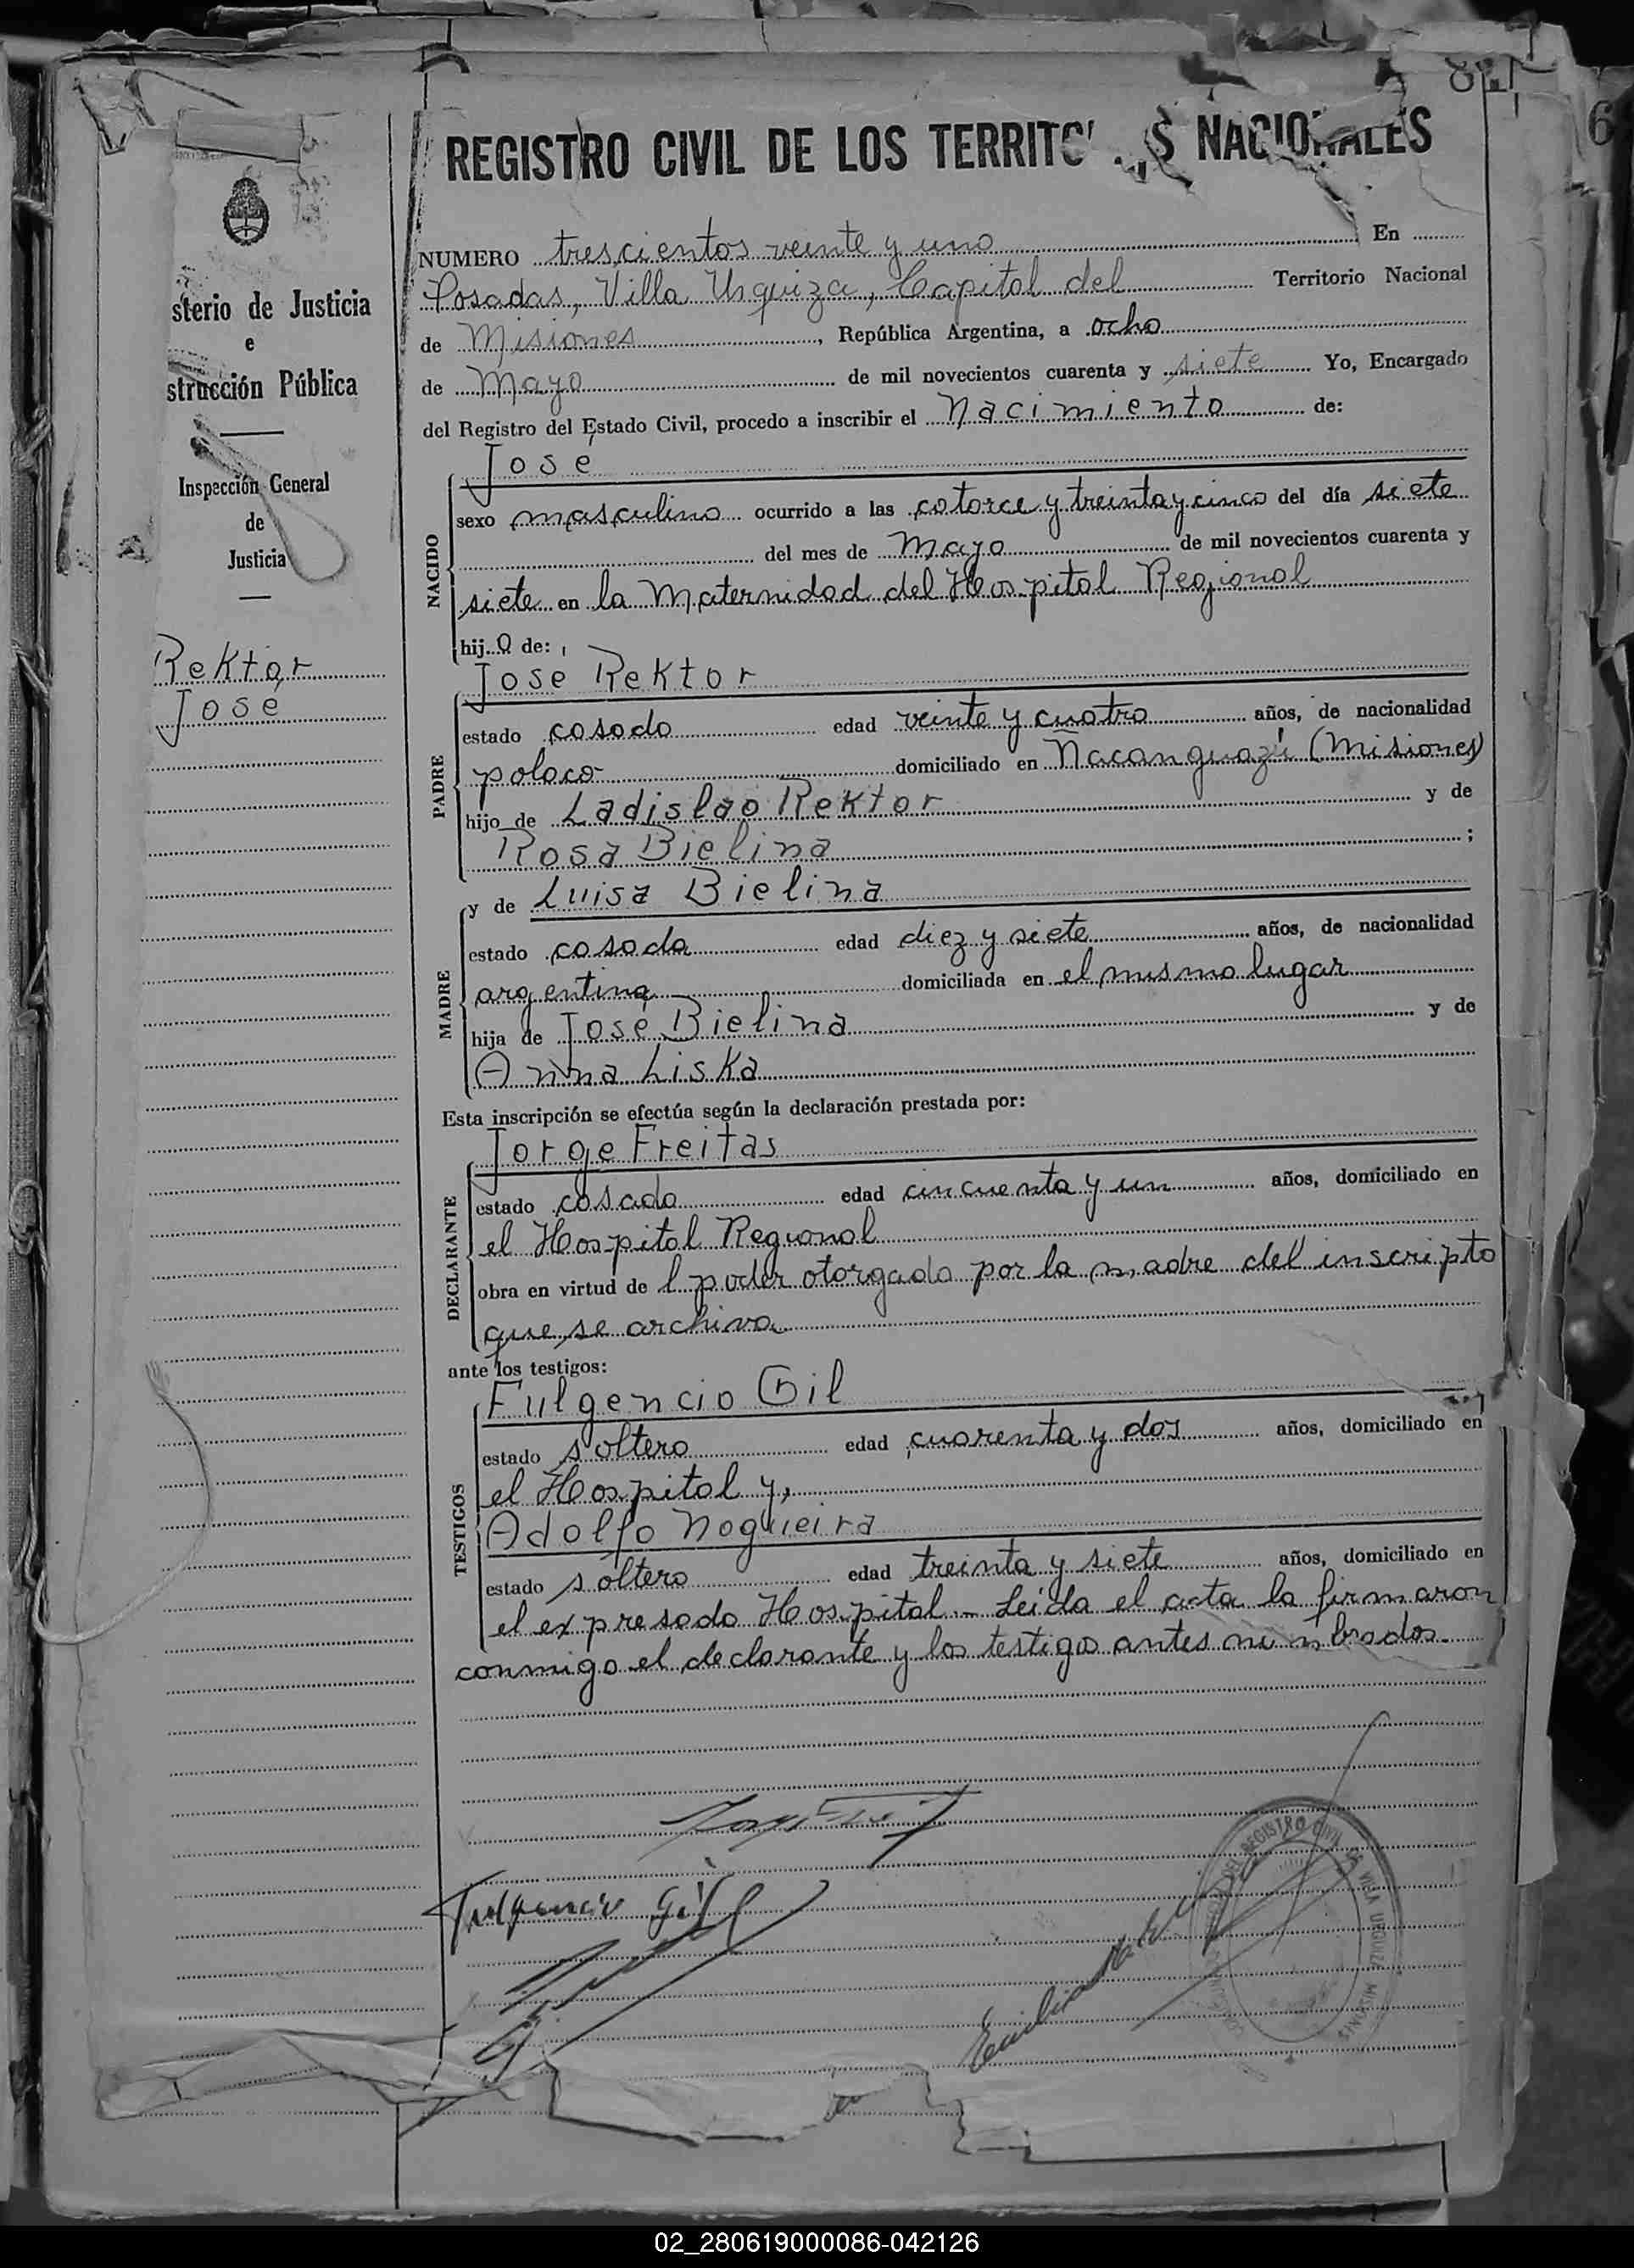 REGISTRO CIVIL DE LOS TERRITO S NACIONALES
sterio de Justicia
e
strucción Pública
Inspección General
de
Justicia
Rektor
José
NUMERO trescientos veinte y uno En
Posadas, Villa Urquiza, Capital del Territorio Nacional
de Misiones, República Argentina, a ocho
de Mayo de mil novecientos cuarenta y siete Yo, Encargado
del Registro del Estado Civil, procedo a inscribir el nacimiento de:
NACIDO
José
sexo masculino ocurrido a las catorce y treinta y cinco del día siete
del mes de Mayo de mil novecientos cuarenta y
siete en la Maternidad del Hospital Regional
hijo de:
Jose Rektor
PADRE
estado casado edad veinte y cuatro años, de nacionalidad
polaco domiciliado en Ñacanguazú (Misiones)
hijo de Ladislao Rektor y de
Rosa Bielina ;
y de Luisa Bielina
MADRE
estado casada edad diez y siete años, de nacionalidad
argentina domiciliada en el mismo lugar
hija de José Bielina y de
Anna Liska
Esta inscripción se efectúa según la declaración prestada por:
Jorge Freitas
DECLARANTE
estado casado edad cincuenta y un años, domiciliado en
el Hospital Regional
obra en virtud de l poder otorgado por la madre del inscripto
que se archiva
ante los testigos:
Fulgencio Gil
TESTIGOS
estado soltero edad cuarenta y dos años, domiciliado en
el Hospital y,
Adolfo Nogueira
estado soltero edad treinta y siete años, domiciliado en
el expresado Hospital - Leída el acta la firmaron
conmigo el declarante y los testigos antes nombrados.
Fulgencio Gil
REGISTRO CIVIL VILLA URQUIZA MISIONES
02_280619000086-042126